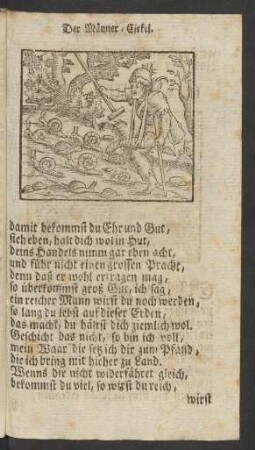 Der Männer-Cirkel.
damit bekommst du Ehr und Gut,
sieh eben, halt dich wol in Hut,
deins Handels nimm gar eben acht,
und führ nicht einen grossen Pracht,
denn daß er wohl ertragen mag,
so überkommst groß Gut, ich sag,
ein reicher Mann wirst du noch werden,
so lang du lebst auf dieser Erden,
das macht, du hältst dich ziemlich wol.
Geschicht das nicht, so bin ich voll,
mein Waar die setz ich dir zum Pfand,
die ich bring mit hieher zu Land.
Wenns dir nicht widerfähret gleich,
bekommst du viel, so wirst du reich,
wirst